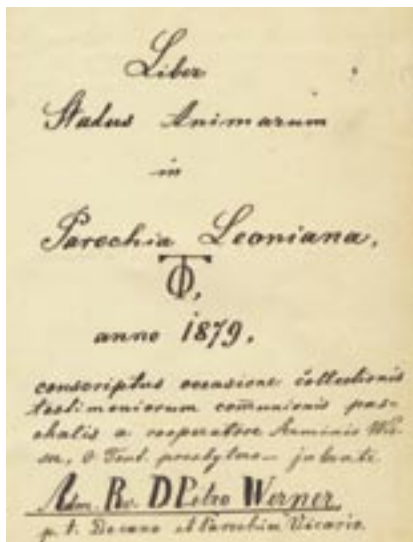 Liber
Status Animarum
in
Parochia Leoniana,
anno 1879,
conscriptus occasione collectionis
testimoniorum com̄unionis pas-
chalis a cooperatore Arminio
O. Teut. presbytero jubente
Adm. Rv. D Petro Werner
p. t. Decano et Parochiæ Vicario.